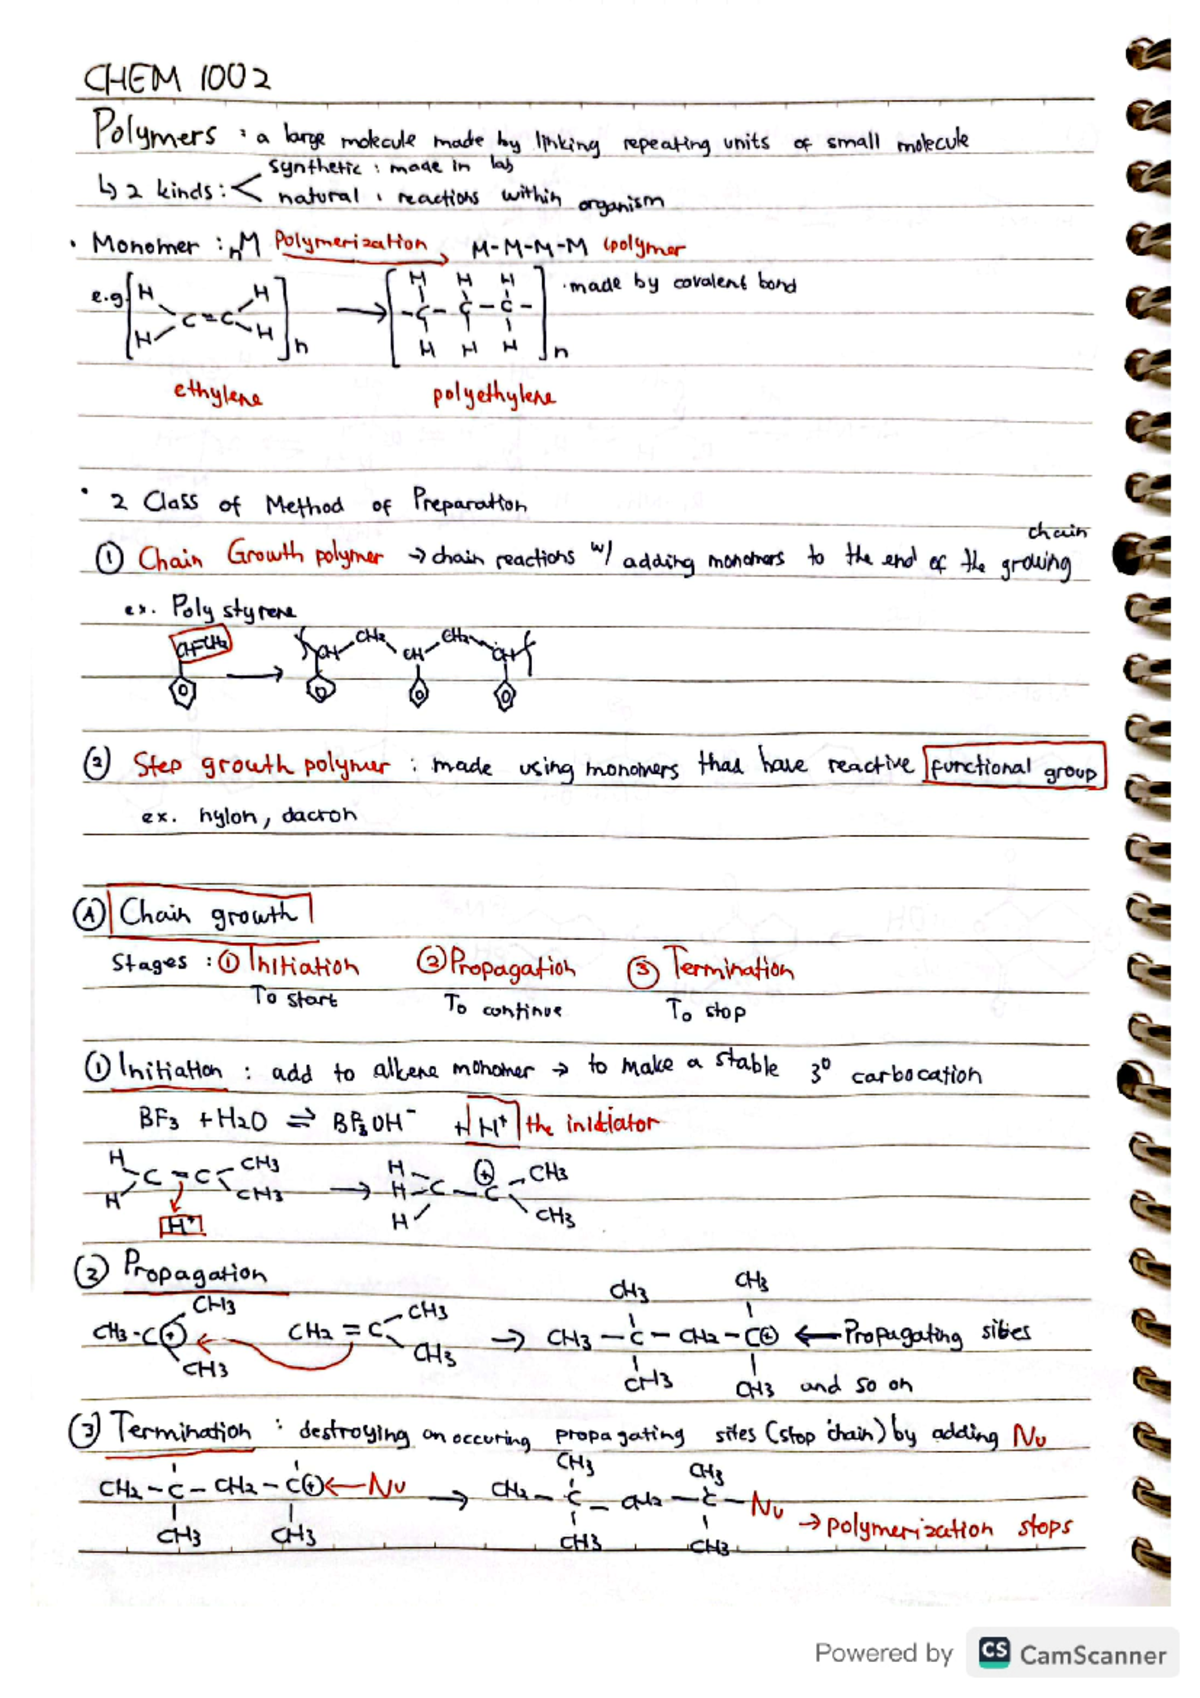 CHEM 1002
Polymers : a large molecule made by linking repeating units of small molecule
↳ 2 kinds : < synthetic : made in lab
natural : reactions within organism
• Monomer : nM Polymerization M-M-M-M (polymer
e.g. [ H H C=C H H ]n → [ H H H -C-C-C- H H H ]n · made by covalent bond
ethylene polyethylene
• 2 Class of Method of Preparation
① Chain Growth polymer → chain reactions w/ adding monomers to the end of the growing chain
ex. Polystyrene
CH=CH2 → CH CH2 CH CH2 CH
② Step growth polymer : made using monomers thad have reactive functional group
ex. nylon, dacron
Ⓐ Chain growth
Stages : ① Initiation ② Propagation ③ Termination
To start To continue To stop
① Initiation : add to alkene monomer → to make a stable 3° carbocation
BF3 + H2O ⇌ BF3OH⁻ + H⁺ the initiator
H H C=C CH3 CH3 → H H H C-C ⊕ CH3 CH3
H⁺
② Propagation
CH3-C⊕ CH3 CH3 CH2=C CH3 CH3 → CH3-C-CH2-C⊕ CH3 CH3 CH3 CH3 ← Propagating sites
and so on
③ Termination : destroying on occuring propagating sites (stop chain) by adding Nu
CH2-C-CH2-C⊕ ← Nu → CH2-C-CH2-C-Nu → polymerization stops
CH3 CH3 CH3 CH3 CH3 CH3
Powered by CS CamScanner